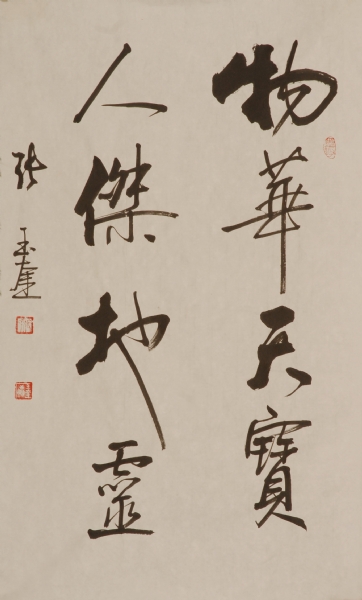 物華天寶
人傑地靈
張